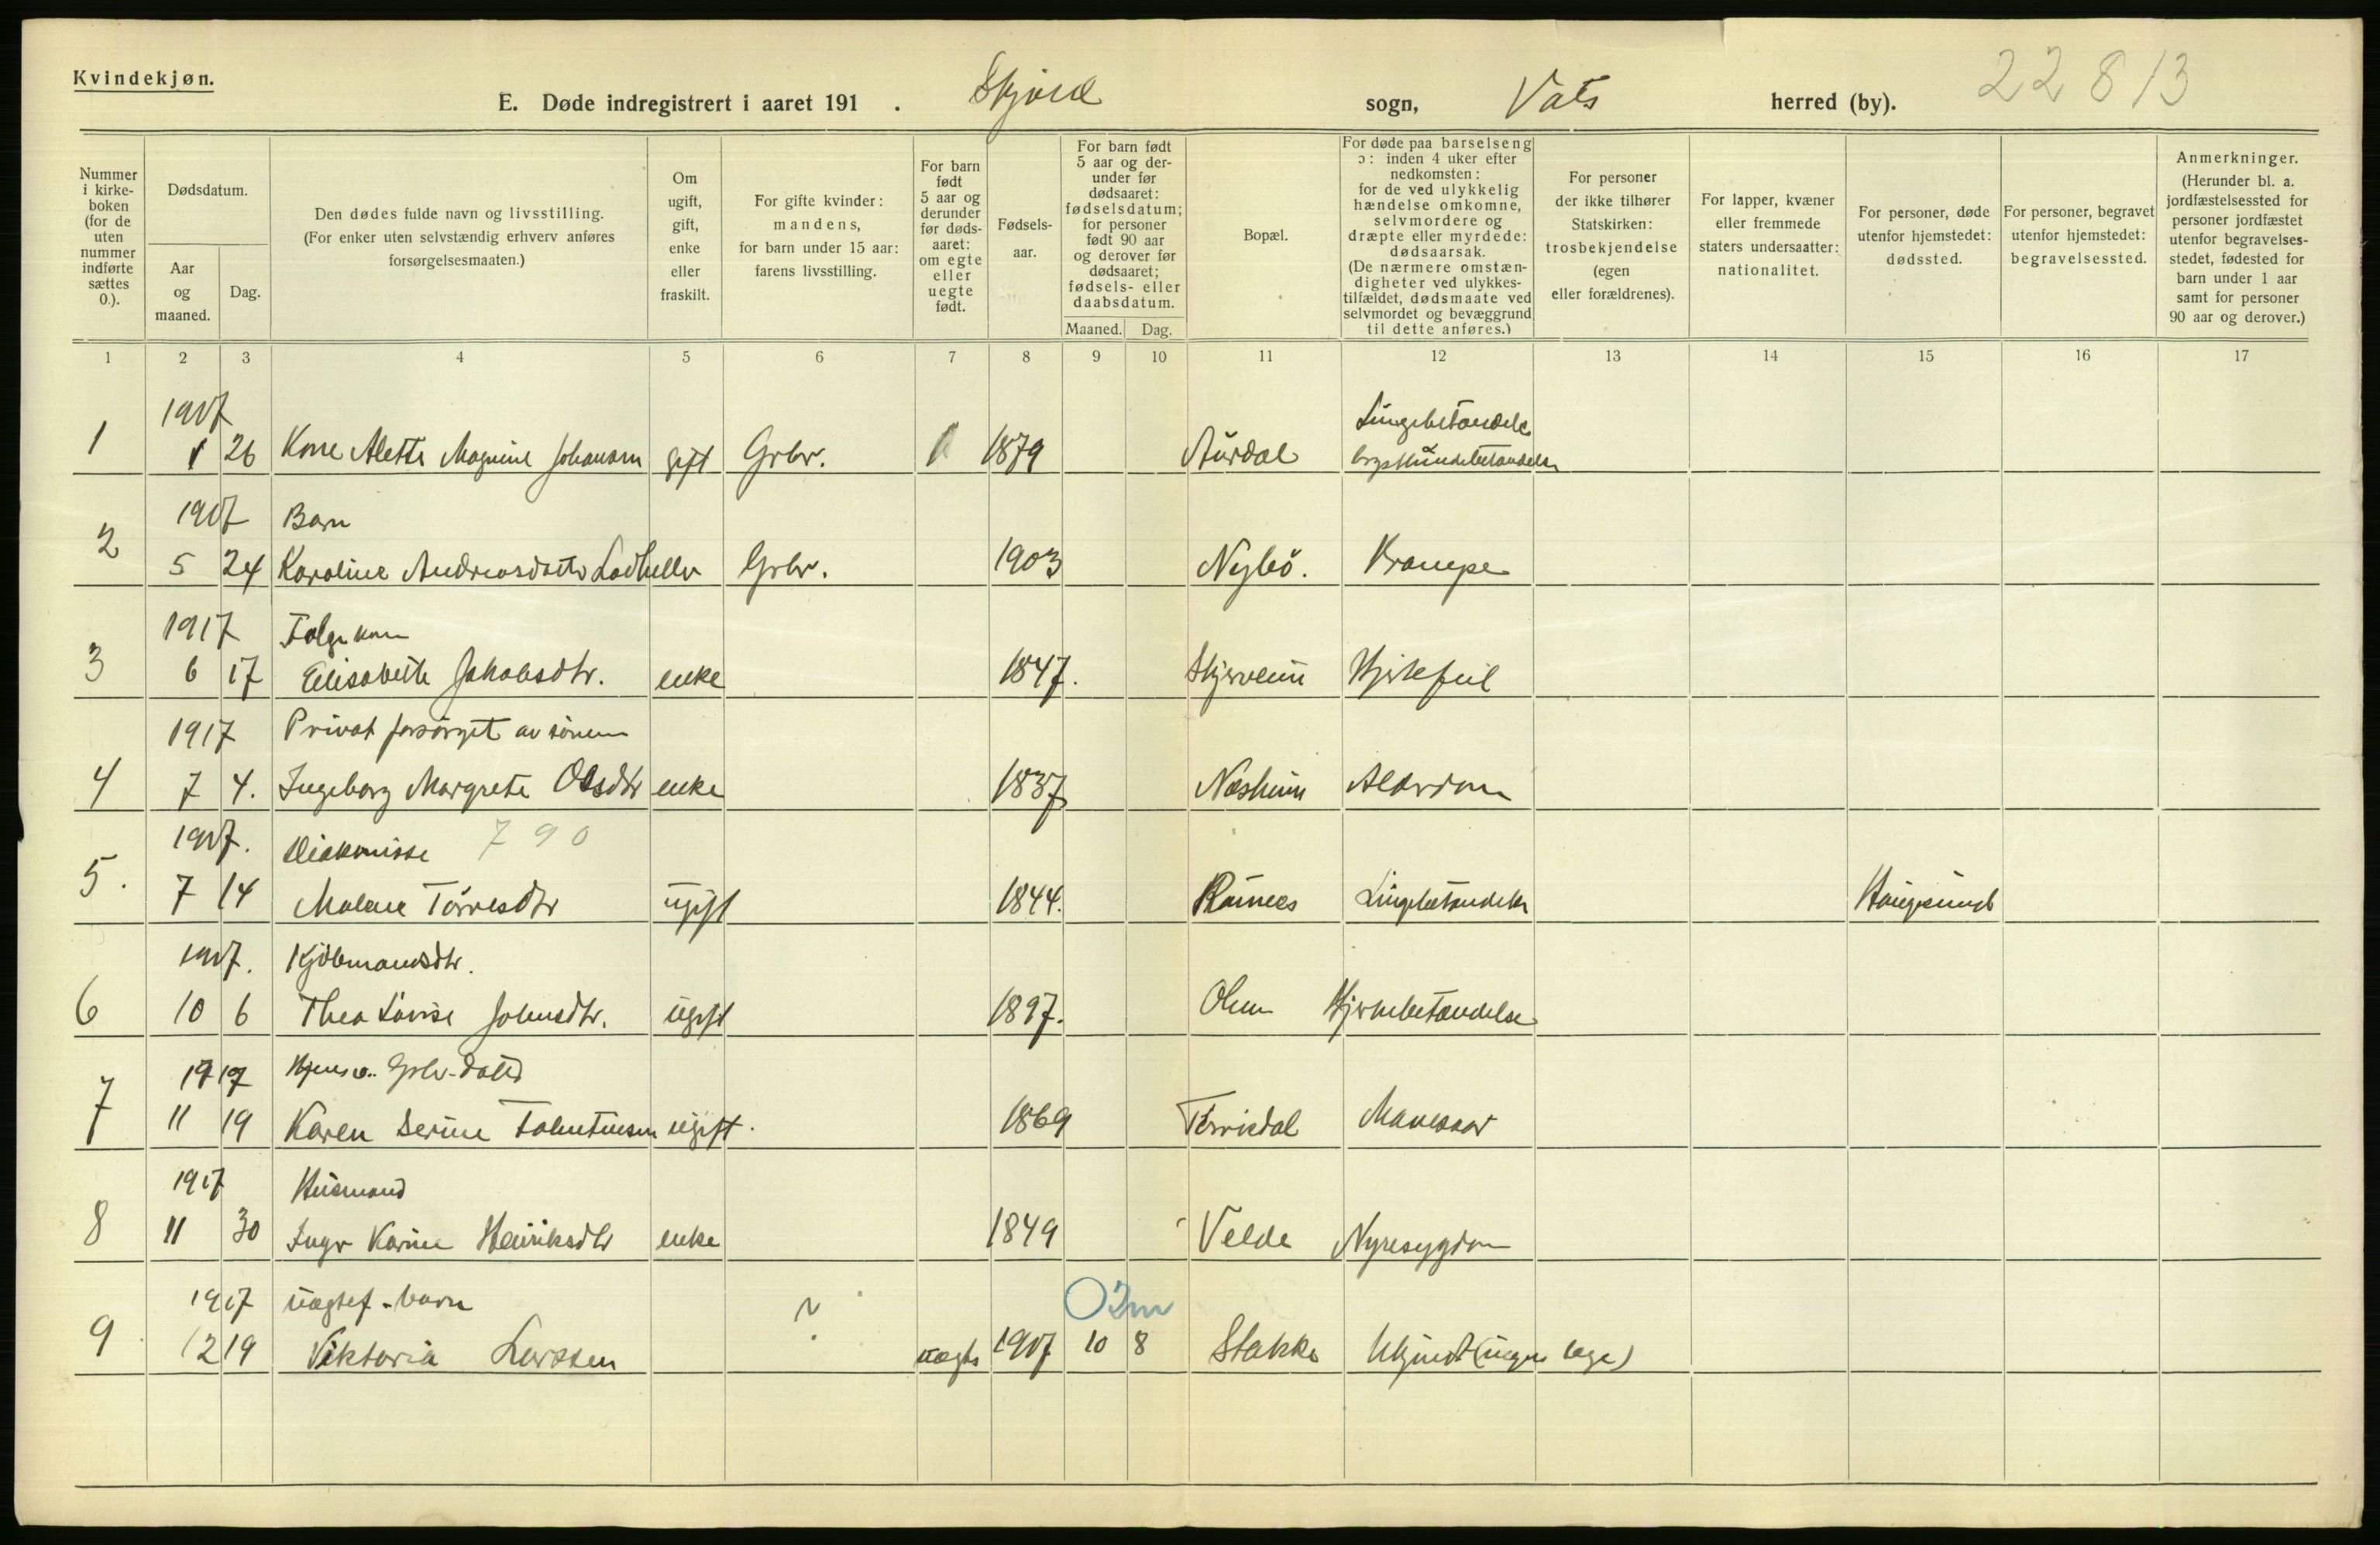 Kvindekjøn.
E. Døde indregistrert i aaret 191 . Skjold sogn, Vats herred (by). 22 813
Nummer i kirkeboken (for de uten nummer indførte sættes 0.).
Dødsdatum.
Aar og maaned.
Dag.
Den dødes fulde navn og livsstilling.
(For enker uten selvstændig erhverv anføres
forsørgelsesmaaten.)
Om ugift, gift, enke eller fraskilt.
For gifte kvinder:
mandens,
for barn under 15 aar:
farens livsstilling.
For barn født 5 aar og derunder før dødsaaret: om egte eller uegte født.
Fødselsaar.
For barn født 5 aar og derunder før dødsaaret: fødselsdatum; for personer født 90 aar og derover før dødsaaret; fødsels- eller daabsdatum.
Maaned. Dag.
Bopæl.
For døde paa barselseng ɔ: inden 4 uker efter nedkomsten: for de ved ulykkelig hændelse omkomne, selvmordere og dræpte eller myrdede: dødsaarsak. (De nærmere omstændigheter ved ulykkestilfældet, dødsmaate ved selvmordet og bevæggrund til dette anføres.)
For personer der ikke tilhører Statskirken: trosbekjendelse (egen eller forældrenes).
For lapper, kvæner eller fremmede staters undersaatter: nationalitet.
For personer, døde utenfor hjemstedet: dødssted.
For personer, begravet utenfor hjemstedet: begravelsessted.
Anmerkninger.
(Herunder bl. a. jordfæstelsessted for personer jordfæstet utenfor begravelsesstedet, fødested for barn under 1 aar samt for personer 90 aar og derover.)
1 2 3 4 5 6 7 8 9 10 11 12 13 14 15 16 17
1917 Lungebetændelse
1 1 26 Kone Alette Magnine Johansen gift Grbr. 1879 Aurdal brysthindebetændelse
1917 Barn
2 5 24 Karoline Andreasdatter Grbr. 1903 Nybø. Krampe
1917 Folgekone
3 6 17 Elisabeth Jakobsdtr. enke 1847. Hjertefeil
1917 Privat forsørget av sønnen
4 7 4. Ingeborg Margrete Olsdtr enke 1837 Næsheim Alderdom
1917. Diakonisse 790
5. 7 14 Malene Tørresdtr ugift 1844. Raunes Lungebetændelse Haugesund
1917. Kjøbmandsdtr.
6 10 6 Thea Lovise Johnsdtr. ugift 1897. Ølen Hjernebetændelse
1917 Grbr-datter
7 11 19 Karen Serine ugift. 1869 Mavesaar
1917 Husmand
8 11 30 Inger Karine Henriksdtr enke 1849 Velde Nyresygdom
1917 uægtef-barn ? 02m
9 12 19 Viktoria Larssen uægte 1917 10 8 Stakke Ukjendt (ingen læge)